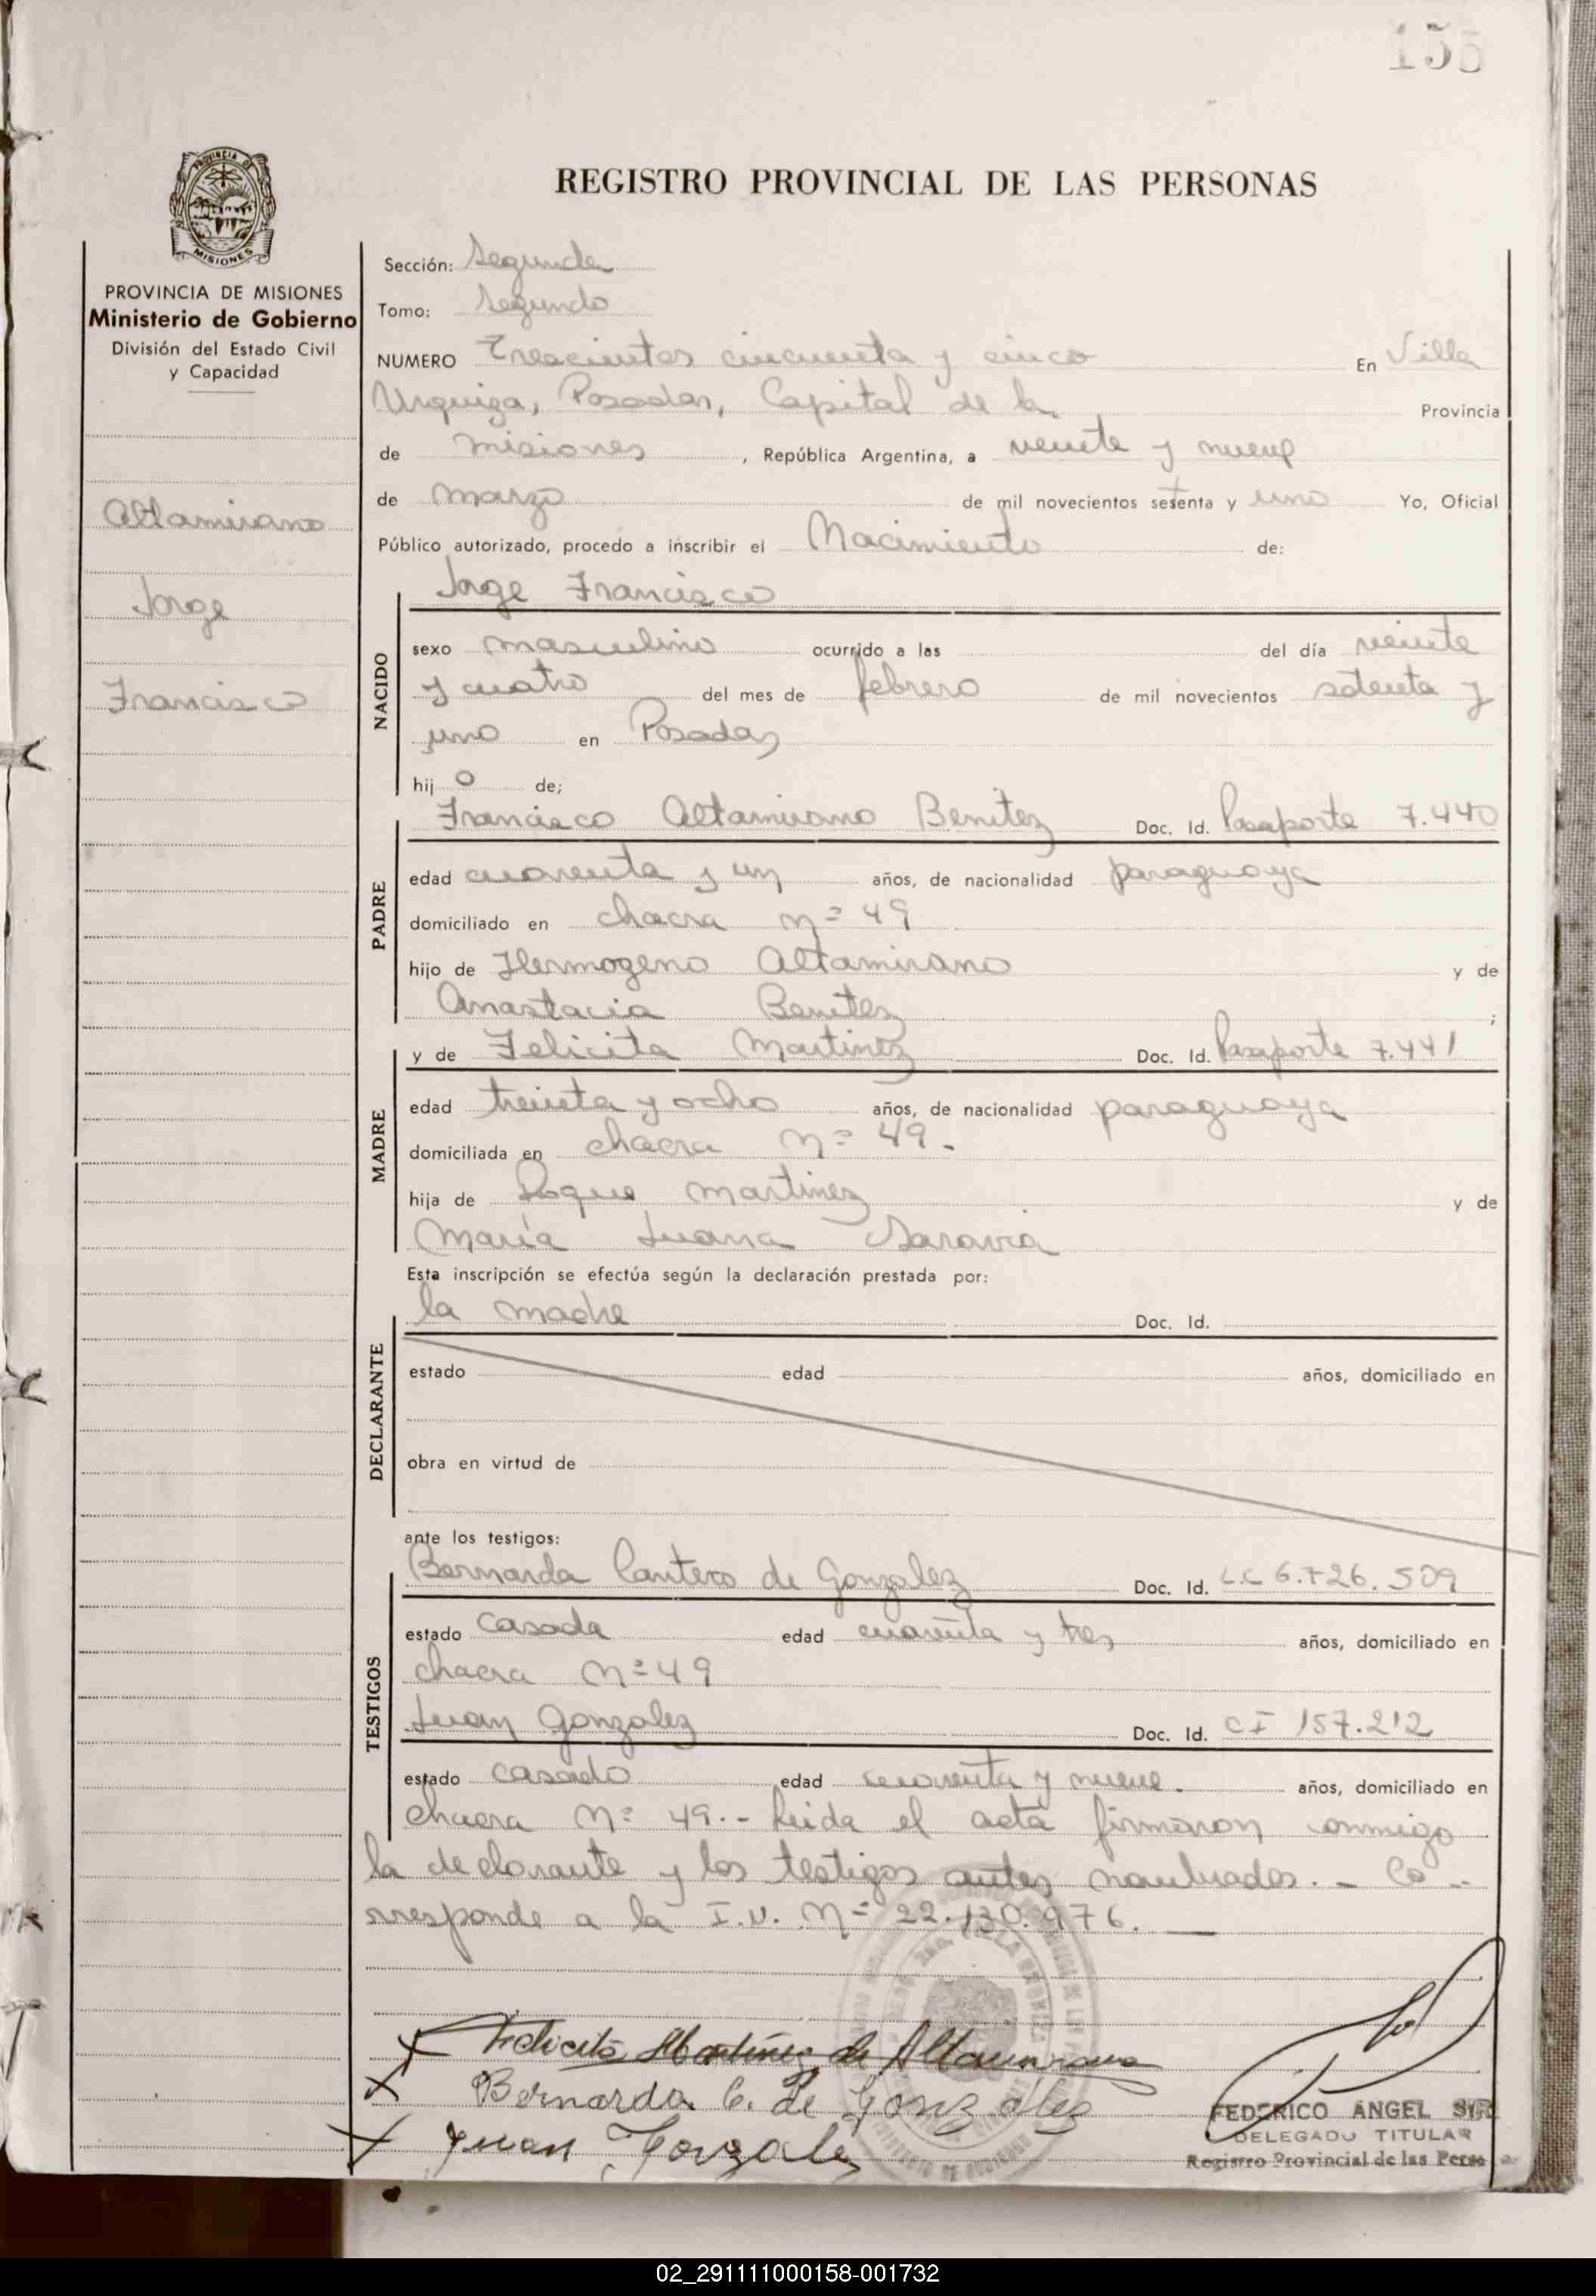 155
PROVINCIA DE MISIONES
Ministerio de Gobierno
División del Estado Civil
y Capacidad
Altamirano
Jorge
Francisco
REGISTRO PROVINCIAL DE LAS PERSONAS
Sección: Segunda
Tomo: Segundo
NUMERO Trescientos cincuenta y cinco En Villa
Urquiza, Posadas, Capital de la Provincia
de Misiones, República Argentina, a veinte y nueve
de Marzo de mil novecientos setenta y uno Yo, Oficial
Público autorizado, procedo a inscribir el Nacimiento de:
NACIDO
Jorge Francisco
sexo masculino ocurrido a las del día veinte
y cuatro del mes de febrero de mil novecientos setenta y
uno en Posadas
hijo de;
PADRE
Francisco Altamirano Benitez Doc. Id. Pasaporte 7.440
edad cuarenta y un años, de nacionalidad paraguaya
domiciliado en chacra nº 49
hijo de Hermogeno Altamirano y de
Anastacia Benitez ;
MADRE
y de Felicita Martinez Doc. Id. Pasaporte 7.441
edad treinta y ocho años, de nacionalidad paraguaya
domiciliada en chacra nº 49.
hija de Roque Martinez y de
María Juana Saravia
Esta inscripción se efectúa según la declaración prestada por:
DECLARANTE
la madre Doc. Id.
estado edad años, domiciliado en
obra en virtud de
ante los testigos:
TESTIGOS
Bernarda Cantero de Gonzalez Doc. Id. L.C 6.726.509
estado casada edad cuarenta y tres años, domiciliado en
chacra nº 49
Juan Gonzalez Doc. Id. CI 157.212
estado casado edad cuarenta y nueve. años, domiciliado en
chacra nº 49.- Leida el acta firmaron conmigo
la declarante y los testigos antes nombrados. - Co-
rresponde a la I.U. nº 22.130.976.
Felicita Martinez de Altamirano
Bernarda C. de Gonzalez
Juan Gonzalez
FEDERICO ANGEL
DELEGADO TITULAR
Registro Provincial de las
02_291111000158-001732